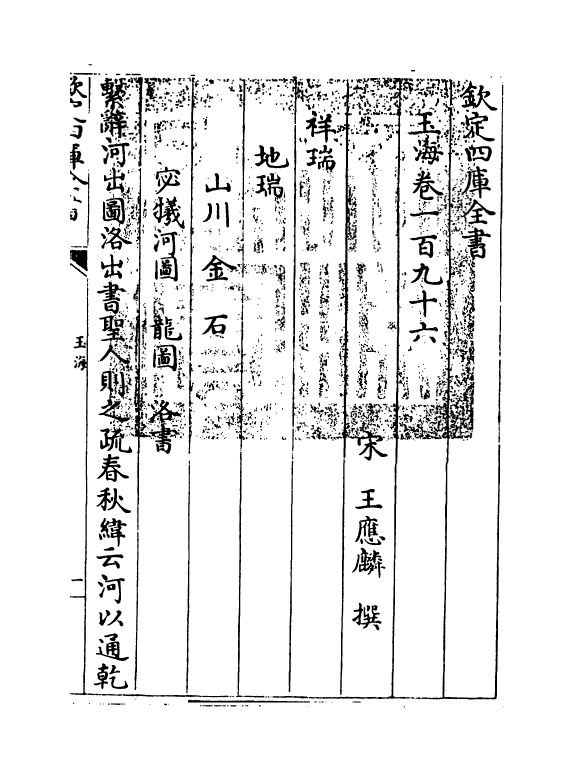 欽定四庫全書
玉海卷一百九十六
宋 王應麟 撰
祥瑞
地瑞
山川 金 石
宓犧河圖 龍圖 洛書
繫辭河出圖洛出書聖人則之疏春秋緯云河以通乾
玉海
一